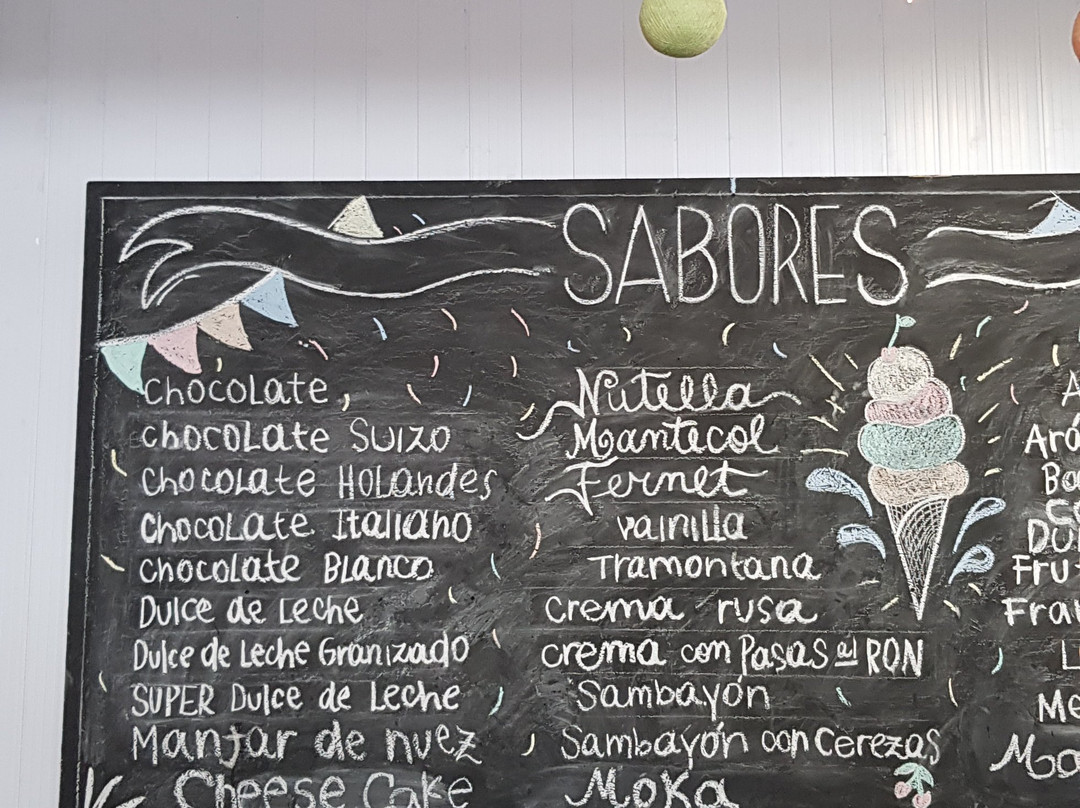 SABORES
Chocolate
Chocolate Suizo
Chocolate Holandes
Chocolate Italiano
Chocolate Blanco
Dulce de Leche
Dulce de Leche Granizado
SUPER Dulce de Leche
Manjar de nuez
Cheese Cake
Nutella
Mantecol
Fernet
vainilla
Tramontana
crema rusa
crema con Pasas al RON
Sambayón
Sambayón con Cerezas
Moka